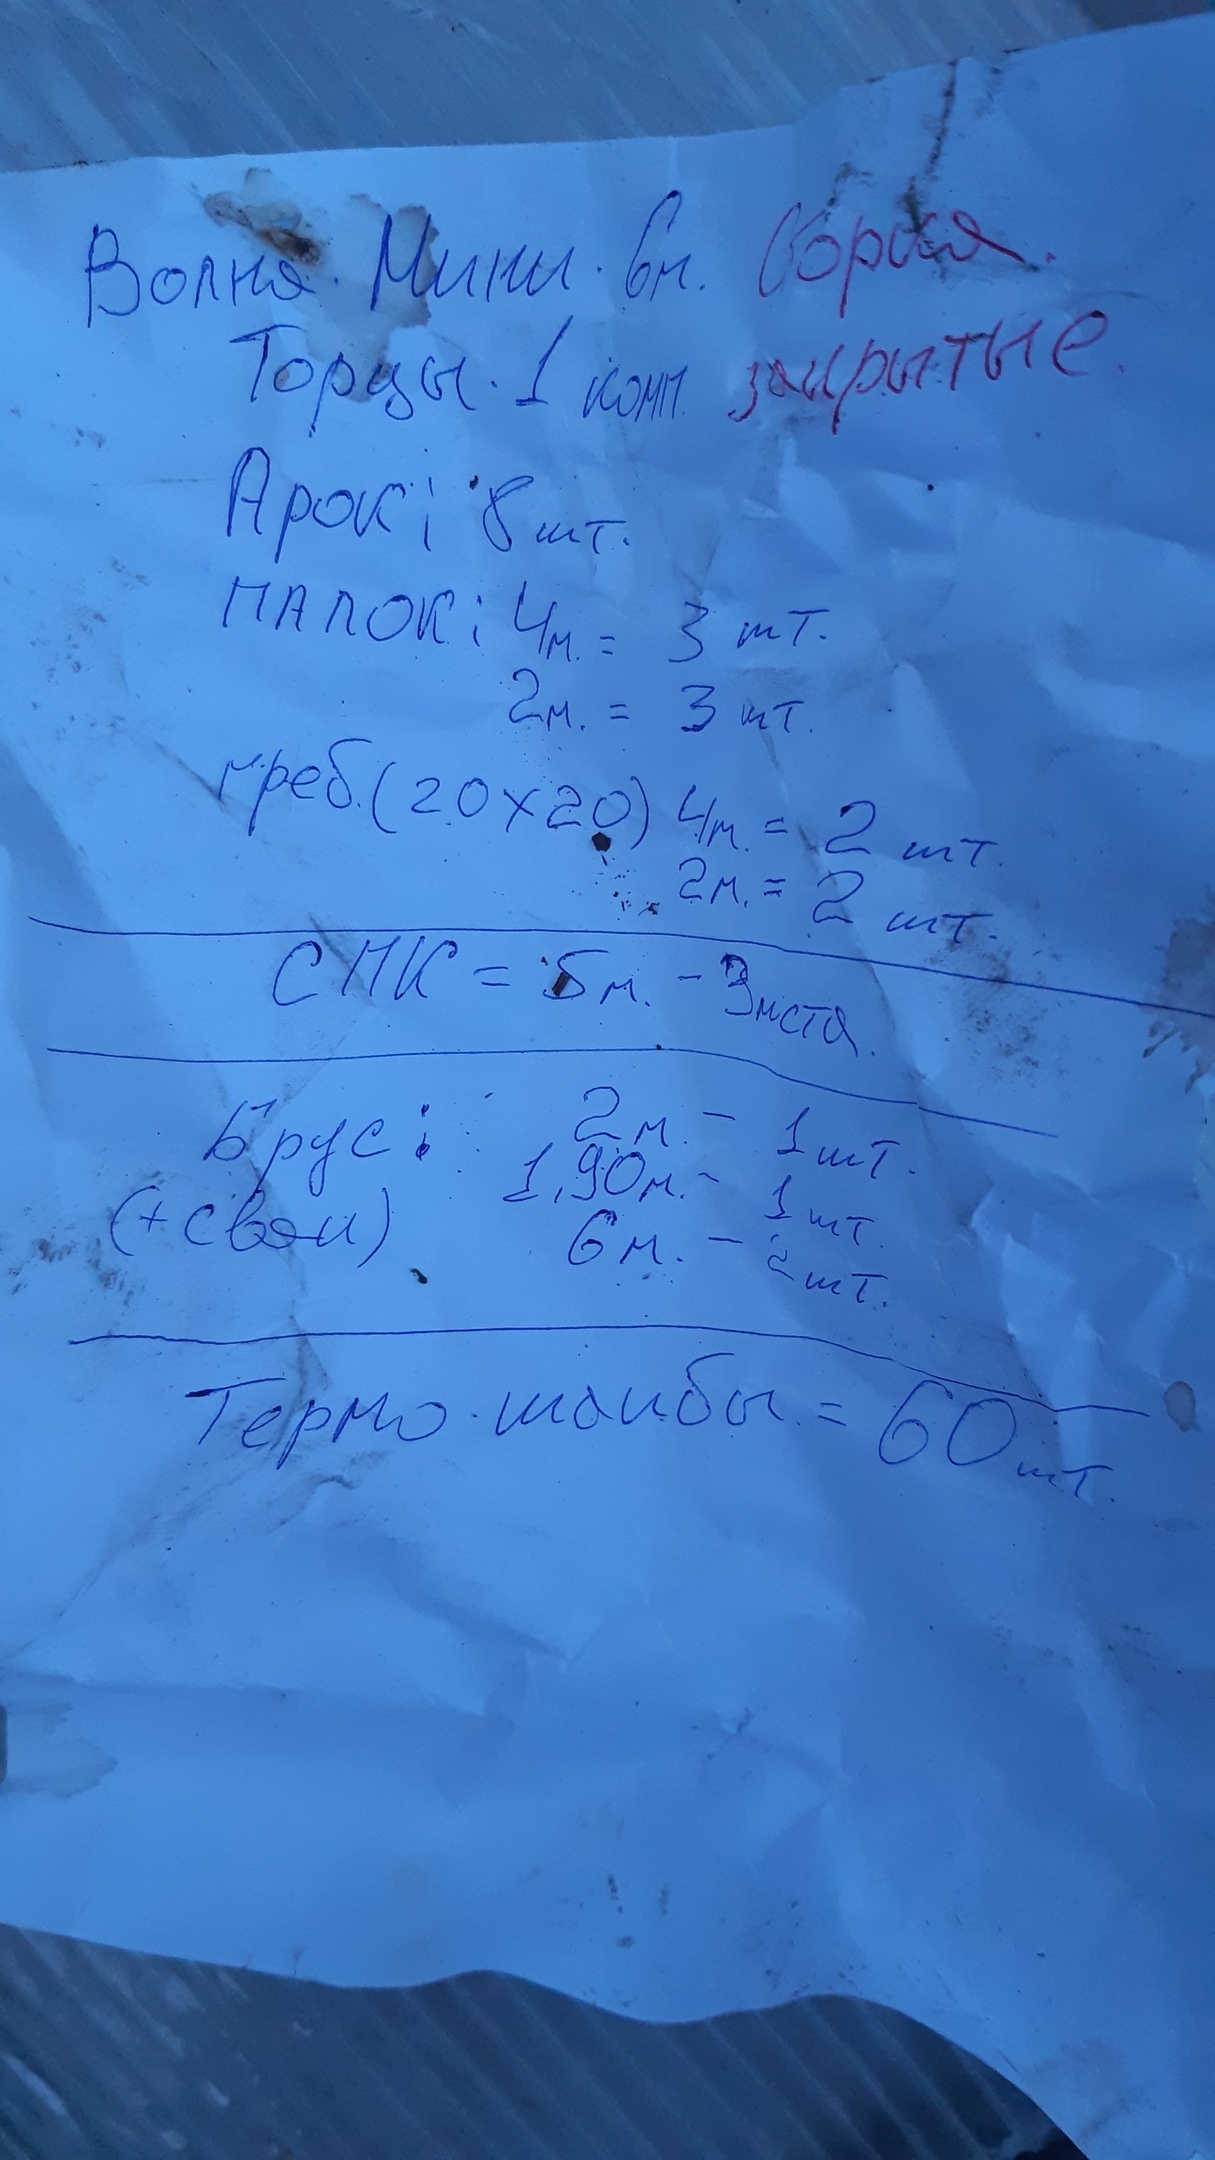 Волна. Мини. 6м.
Торцы. 1 комп. закрытые.
Арок: 8 шт.
ПАЛОК: 4м. = 3 шт.
2м. = 3 шт.
Греб. (20х20) 4м. = 2 шт.
2м. = 2 шт.
СПК = 5м. - 3листа.
Брус: 2м. - 1 шт.
1,90м. - 1 шт.
(+сваи) 6м. - 2 шт.
Термо. шаибы. = 60 шт.